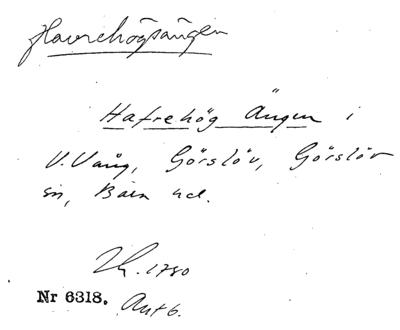 Havrehögsängen
Hafrehög Ängen i
V. Vång, Görslöv, Görslöv
sn, Bara hd.
1780
Nr 6318. Akt 6.